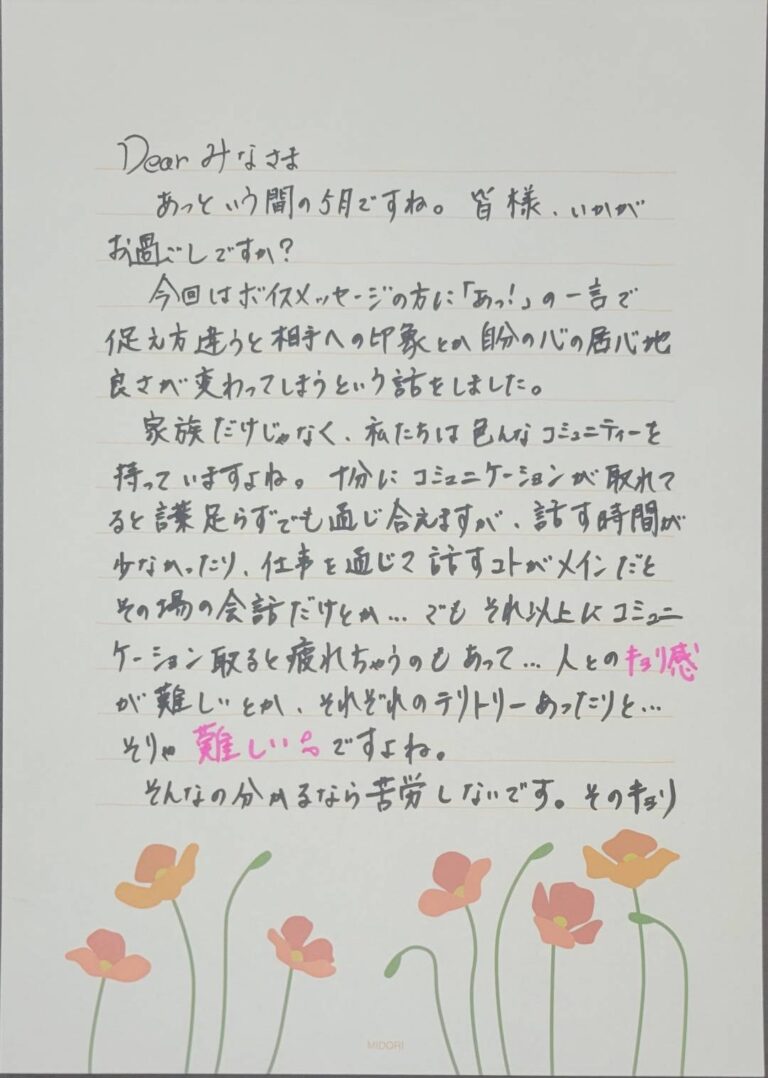 Dear みなさま
あっという間の5月ですね。皆様、いかが
お過ごしですか?
今回はボイスメッセージの方に「あっ!」の一言で
捉え方違うと相手への印象とか自分の心の居心地
良さが変わってしまうという話をしました。
家族だけじゃなく、私たちは色んなコミュニティーを
持っていますよね。十分にコミュニケーションが取れて
ると言葉足らずでも通じ合えますが、話す時間が
少なかったり、仕事を通じて話すコトがメインだと
その場の会話だけとか…でもそれ以上にコミュニ
ケーション取ると疲れちゃうのもあって…人とのキョリ感
が難しいとか、それぞれのテリトリーあったりと…
そりゃ難しいですよね。
そんなの分かるなら苦労しないです。そのキョリ
MIDORI